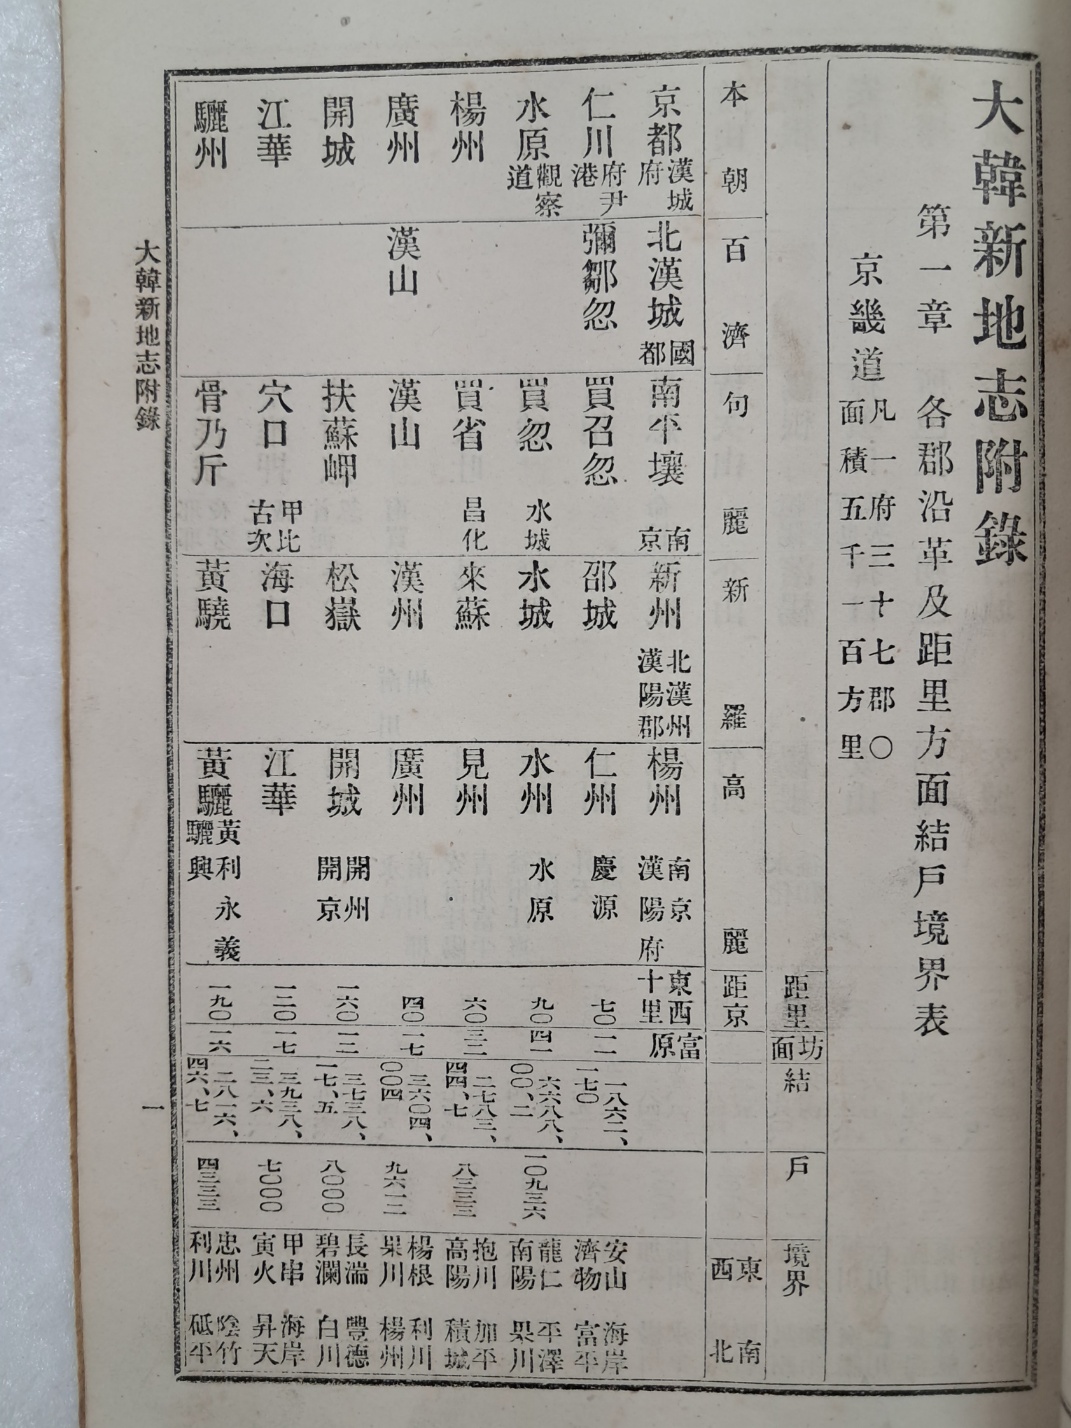 大韓新地志附錄
第一章 各郡沿革及距里方面結戶境界表
京畿道 凡一府三十七郡〇
面積五千一百方里
距里 坊面 結 戶 境界
本朝 百濟 句麗 新羅 高麗 距京 東西 南北
京都 漢城府 北漢城 國都 南平壤 南京 新州 北漢州 漢陽郡 楊州 南京 漢陽府 東西十里 富原
仁川 府尹 港 彌鄒忽 買召忽 邵城 仁州 慶源 七〇 一一 一八六二、一七〇 安山 海岸 濟物 富平
水原 觀察道 買忽 水城 水城 水州 水原 九〇 四一 六六八八、〇〇、二 一〇九三六 龍仁 平澤 南陽 果川
楊州 買省 昌化 來蘇 見州 六〇 三二 二七八三、四四、七 八三三三 抱川 加平 高陽 積城
廣州 漢山 漢山 漢州 廣州 四〇 一七 三六〇四、〇〇四 九六一二 楊根 利川 果川 楊州
開城 扶蘇岬 松嶽 開城 開州 開京 一六〇 一二 三七三八、一七、五 八〇〇〇 長湍 豐德 碧瀾 白川
江華 穴口 甲比古次 海口 江華 一二〇 一七 三九三八、二三、六 七〇〇〇 甲串 海岸 寅火 昇天
驪州 骨乃斤 黃驍 黃驪 黃利 永義 驪興 一九〇 一六 二八一六、四六、七 四三三三 忠州 陰竹 利川 砥平
大韓新地志附錄
一